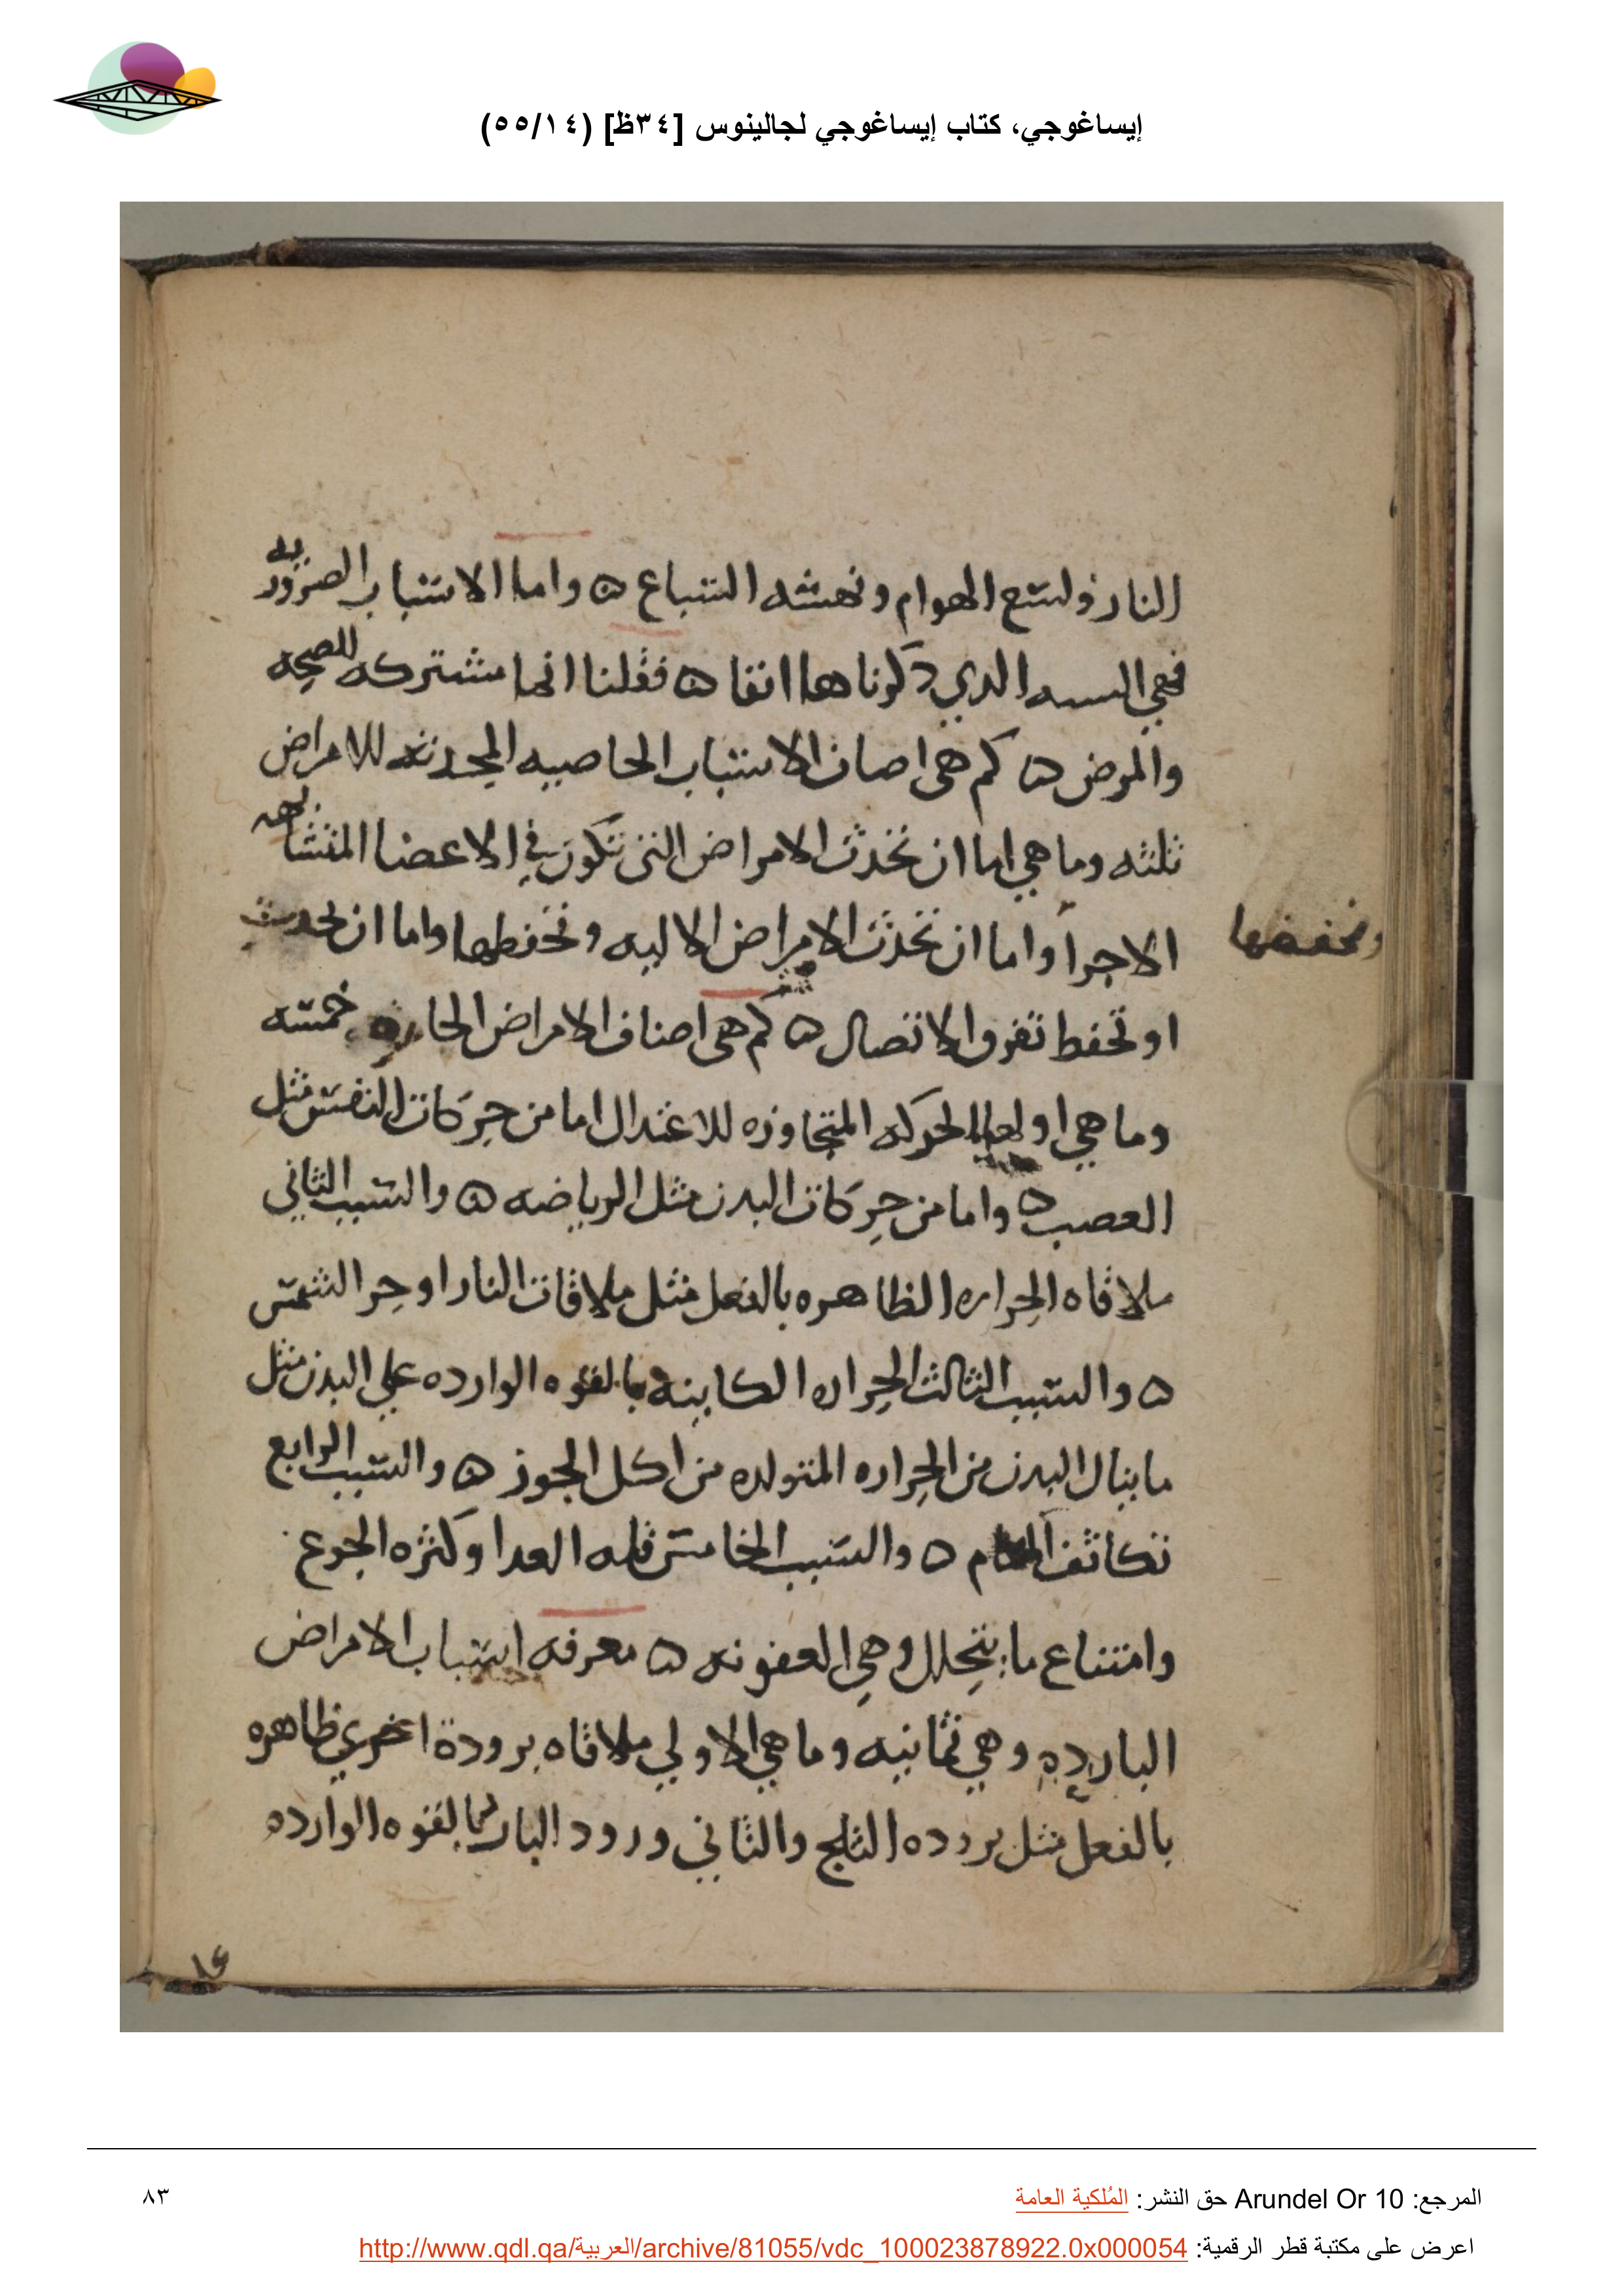 إيساغوجي، كتاب إيساغوجي لجالينوس [٣٤ظ] (٥٥/١٤)
النار ولسع الهوام ونهشه السباع ۵ واما الاسباب الضروريه
فهي السته الدي دكرناها انفا ۵ فقلنا انها مشتركه للصحه
والمرض ۵ كم هى اصناف الاسباب الخاصيه المحدثه للامراض
ثلثه وما هي اما ان تحدث الامراض التى تكون في الاعضا المتشابهه
الاجرا واما ان تحدث الامراض الاليه وتحفطها واما ان تحدث
وتحفضها
او تحفط تفرق الاتصال ۵ كم هى اصناف الامراض الحاره خمسه
وما هي اولها الحركه المتجاوزه للاعتدال اما من حركات النفس مثل
الغضب ۵ واما من حركات البدن مثل الرياضه ۵ والسبب الثاني
ملاقاه الحراره الظاهره بالفعل مثل ملاقات النار او حر الشمس
۵ والسبب الثالث الحراره الكاينه بالقوه الوارده علي البدن مثل
ما ينال البدن من الحراره المتولده من اكل الجوز ۵ والسبب الرابع
تكاثف المسام ۵ والسبب الخامس قله العدا وكثره الجوع
وامتناع ما يتحلل وهي العفونه ۵ معرفه اسباب الامراض
البارده وهي ثمانيه وما هي الاولي ملاقاه برودة اخري ظاهره
بالفعل مثل بروده الثلج والثاني ورود البارد بالقوه الوارده
المرجع: Arundel Or 10 حق النشر: المُلكية العامة
٨٣
اعرض على مكتبة قطر الرقمية: http://www.qdl.qa/العربية/archive/81055/vdc_100023878922.0x000054